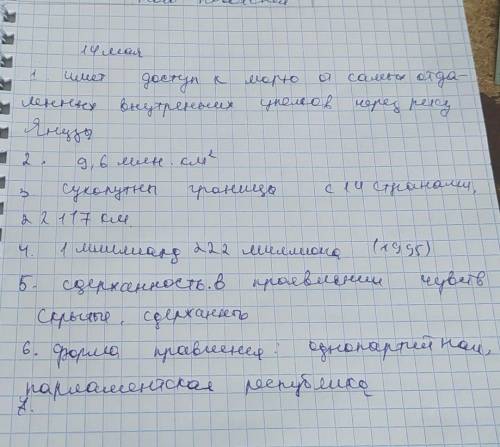 14 мая
1 имет доступ к морю от самых отда-
ленных внутренних через реку
Янцзы
2. 9,6 млн. км²
3 сухопутны границы с 14 странами,
22 117 км.
4. 1 миллиард 222 миллиона (1995)
5. сдержанность в проявлении чувств
скрытые, сдержанно
6. форма правления: однопартийная,
парламентская республика
7.